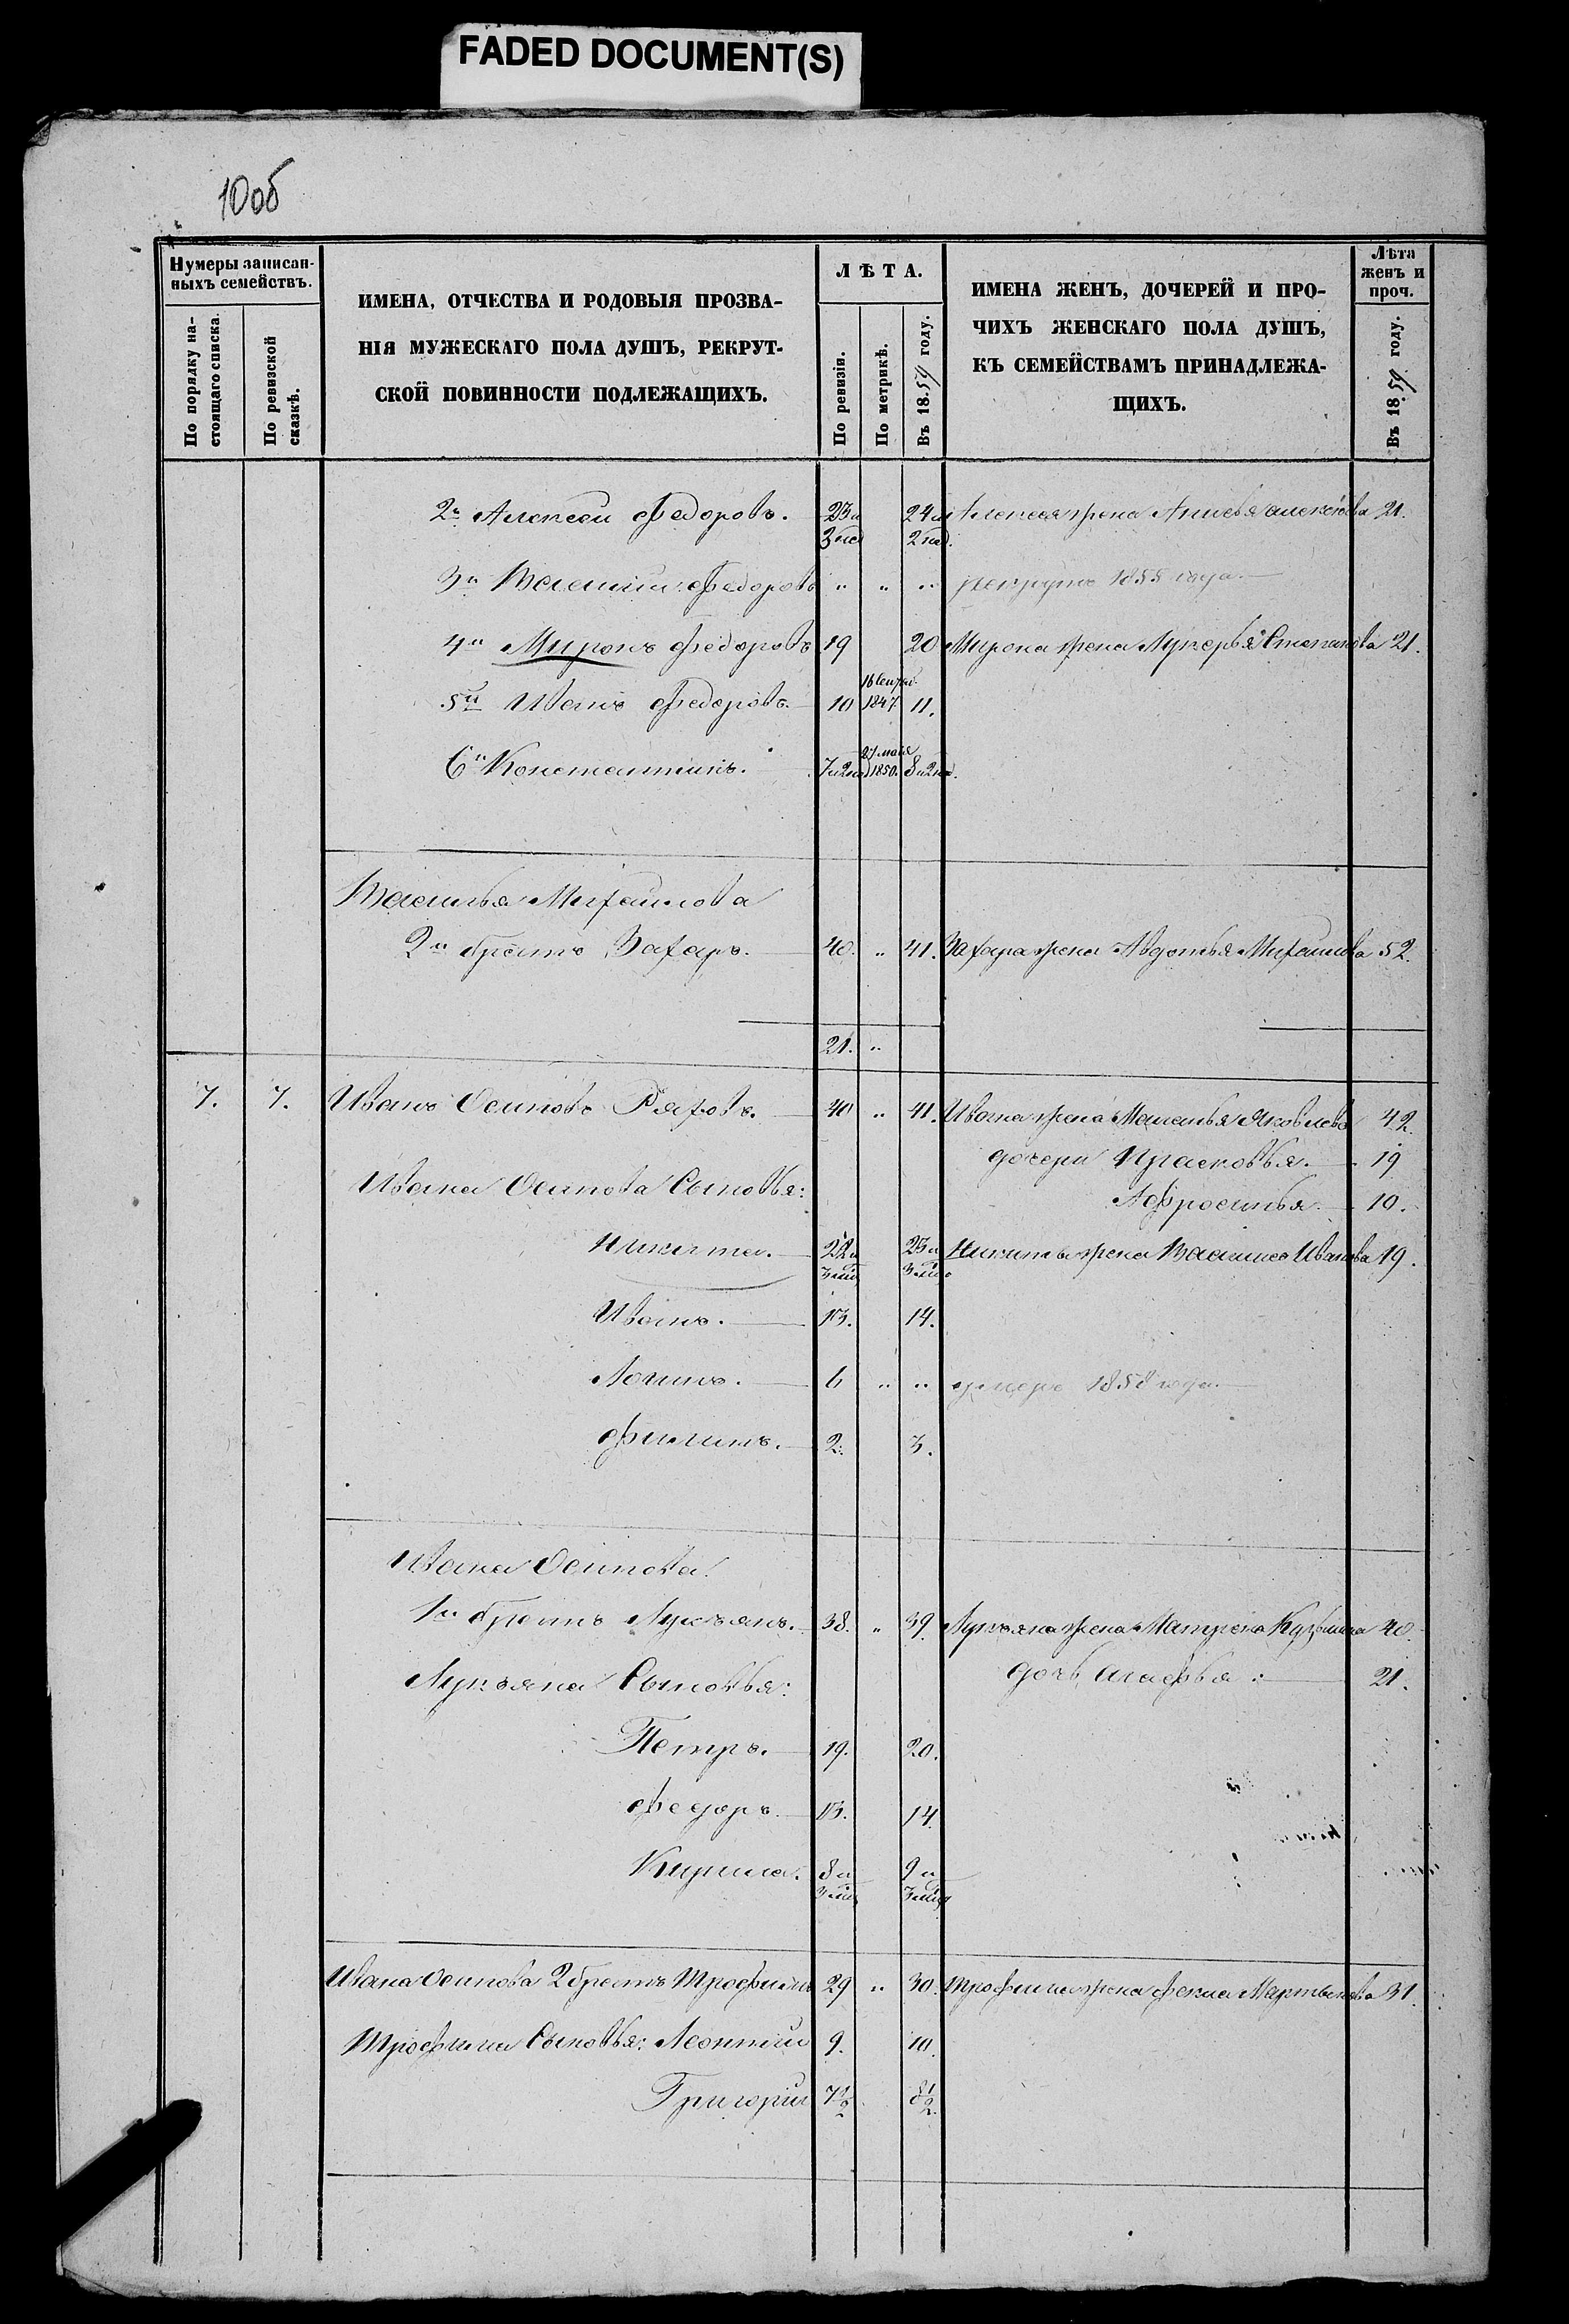 FADED DOCUMENT(S)
10об
Нумеры записан-
ныхъ семействъ.
По порядку на-
стоящаго списка.
По ревизской
сказкѣ.
ИМЕНА, ОТЧЕСТВА И РОДОВЫЯ ПРОЗВА-
НІЯ МУЖЕСКАГО ПОЛА ДУШЪ, РЕКРУТ-
СКОЙ ПОВИННОСТИ ПОДЛЕЖАЩИХЪ.
ЛѢТА.
По ревизіи.
По метрикѣ.
Въ 1859 году.
ИМЕНА ЖЕНЪ, ДОЧЕРЕЙ И ПРО-
ЧИХЪ ЖЕНСКАГО ПОЛА ДУШЪ,
КЪ СЕМЕЙСТВАМЪ ПРИНАДЛЕЖА-
ЩИХЪ.
Лѣта
женъ и
проч.
Въ 1859 году.
2й Алексей Федоровъ. 23 и 24 и Алексея жена 21.
3 нед 2 нед.
3й Василий Федоровъ " " " рекрутъ 1855 года.
4й Миронъ Федоровъ 19 20 Мирона жена Лукерья Степанова 21.
16 сентяб.
5й Иванъ Федоровъ. 10 1847 11.
27 мая
6й Константинъ. 7 и 2 нед 1850. 8 и 2 нед.
Василья Михайлова
2й братъ Захаръ. 40. " 41. Захара жена Авдотья Михайлова 52.
21. "
7. 7. Иванъ Осиповъ 40 " 41. Ивана жена Яковлева 42.
дочери Прасковья. 19
Ивана Осипова Сыновья:
Афросинья. 10.
Никита. 22 и 23 и Никиты жена Василиса Иванова 19.
3 мец 3 мец
Иванъ. 13. 14.
Логинъ. 6 " " умеръ 1858 года.
Филипъ. 2. 3.
Ивана Осипова
1й братъ Лукъянъ. 38. " 39. Лукъяна жена Матрена Кузьмина 40.
Лукъяна Сыновья: дочь Агафья: 21.
Петръ. 19. 20.
Федоръ. 13. 14.
Кирила. 8 и 9 и
3 мец 3 мец
Ивана Осипова 2 братъ Трофимъ 29 " 30. Трофима жена Фекла Мартынова 31.
Трофима Сыновья: Леонтий 9. 10.
Григорий 7 1/2 8 1/2.